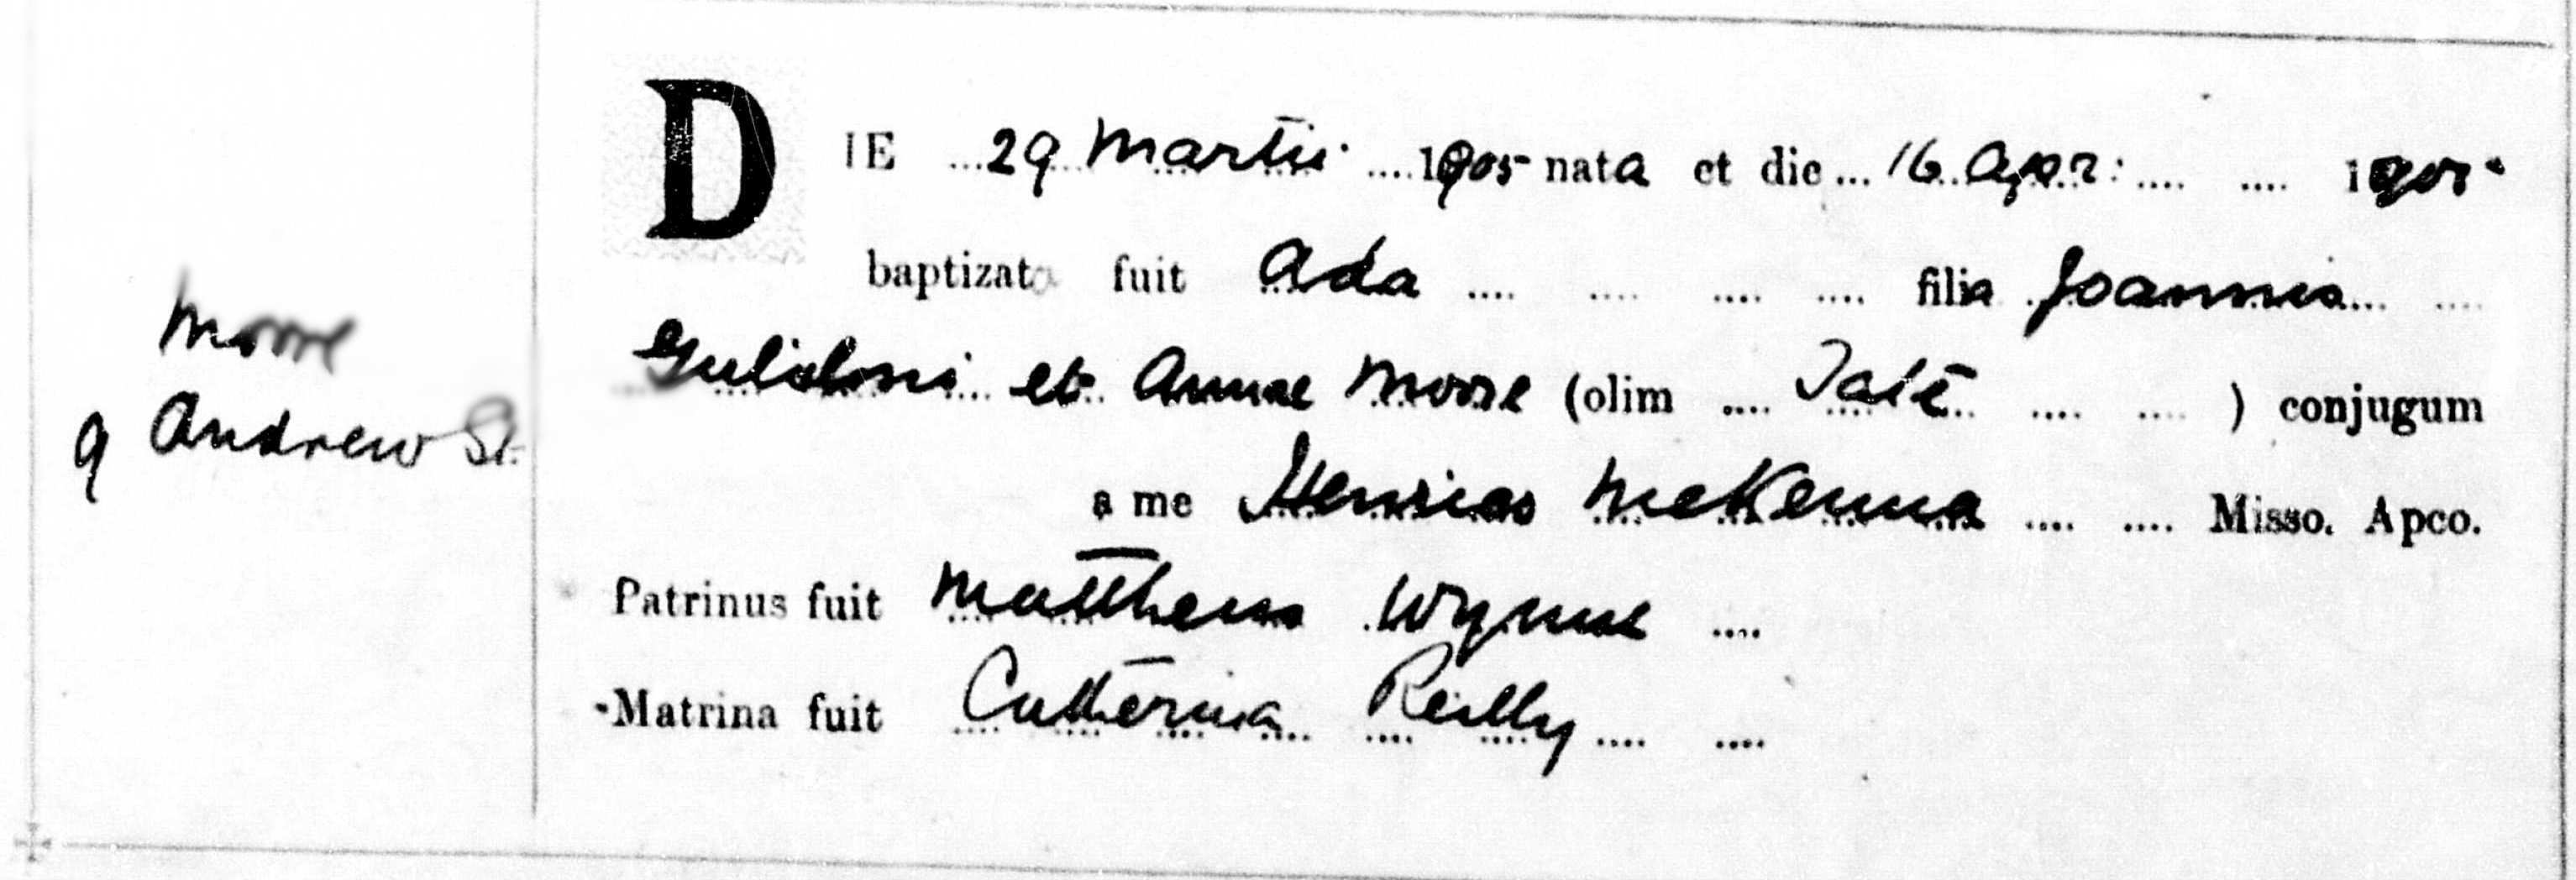 DIE 29 Martii 1905 nata et die 16 Apr: 1905
baptizata fuit Ada filia Joannis
Moore
Gulielmi et Annae Moore (olim Tate) conjugum
9 Andrew St.
a me Henricus McKenna Misso. Apco.
Patrinus fuit Mattheus Wynne
Matrina fuit Catherina Reilly